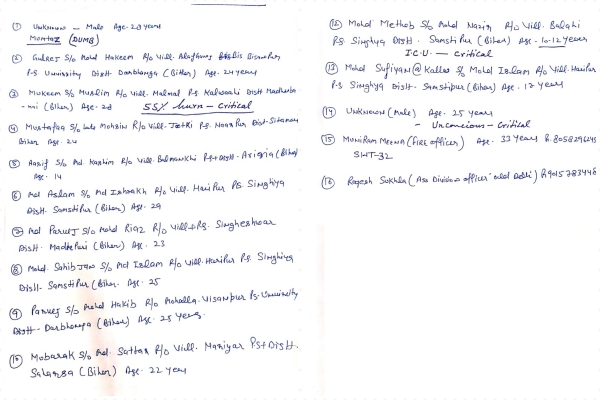 ① Unknown — Male Age. 28 years
Momtaz (DUMB)
② Gulrez S/o Mohd Hakeem R/o Vill. Bisanpur
P.S. University Distt Darbhanga (Bihar) Age. 24 years
③ Mukeem S/o Muslim R/o Vill. Malmal P.S Kalwashi Distt Madhuba
-ni (Bihar) Age. 28 55% burn - Critical
④ Mustafaa S/o Late Mohsin R/o Vill. P.S. Noorpur Dist-Sitamau
Bihar Age. 24
⑤ Aasif S/o Md. Kashim R/o Vill. Balmankhi P.S+Distt. Arioria (Bihar)
Age. 14
⑥ Md Aslam S/o Md Ishaakh R/o Vill. Haripur P.S. Singhiya
Distt. Samstipur (Bihar) Age. 29
⑦ Md Paruej S/o Mohd Riaz R/o Vill+P.S. Singheshwar
Distt. Madhepuri (Bihar) Age. 23
⑧ Mohd. Sahib Jaan S/o Md Islam R/o Vill. Haripur P.S. Singhiya
Distt. Samstipur (Bihar. Age. 25
⑨ Paruej S/o Mohd Hakib R/o Mohalla. Visanpur P.S. University
Distt- Darbhanga (Bihar) Age. 25 years.
⑩ Mobarak S/o Md. Sattar R/o Vill. Maniyar PS+Distt.
Saharsa (Bihar) Age. 22 years
Mohd Methob S/o Mohd Nazir R/o Vill. Balahi
P.S. Singhya Distt. Samstipur (Bihar) Age. 10-12 years
I.C.U - Critical
⑬ Mohd Sufiyan @ Kallas S/o Mohd Islam R/o Vill. Haripur
P.S Singhya Distt. Samstipur (Bihar) Age. 17 years
⑭ Unknown (Male) Age. 25 years
- Unconcious - Critical
⑮ Muniram Meena (Fire officer) Age. 33 years
SWT-32
⑯ Rajesh Sukhla (Ass Division officer Delhi) 9015783448